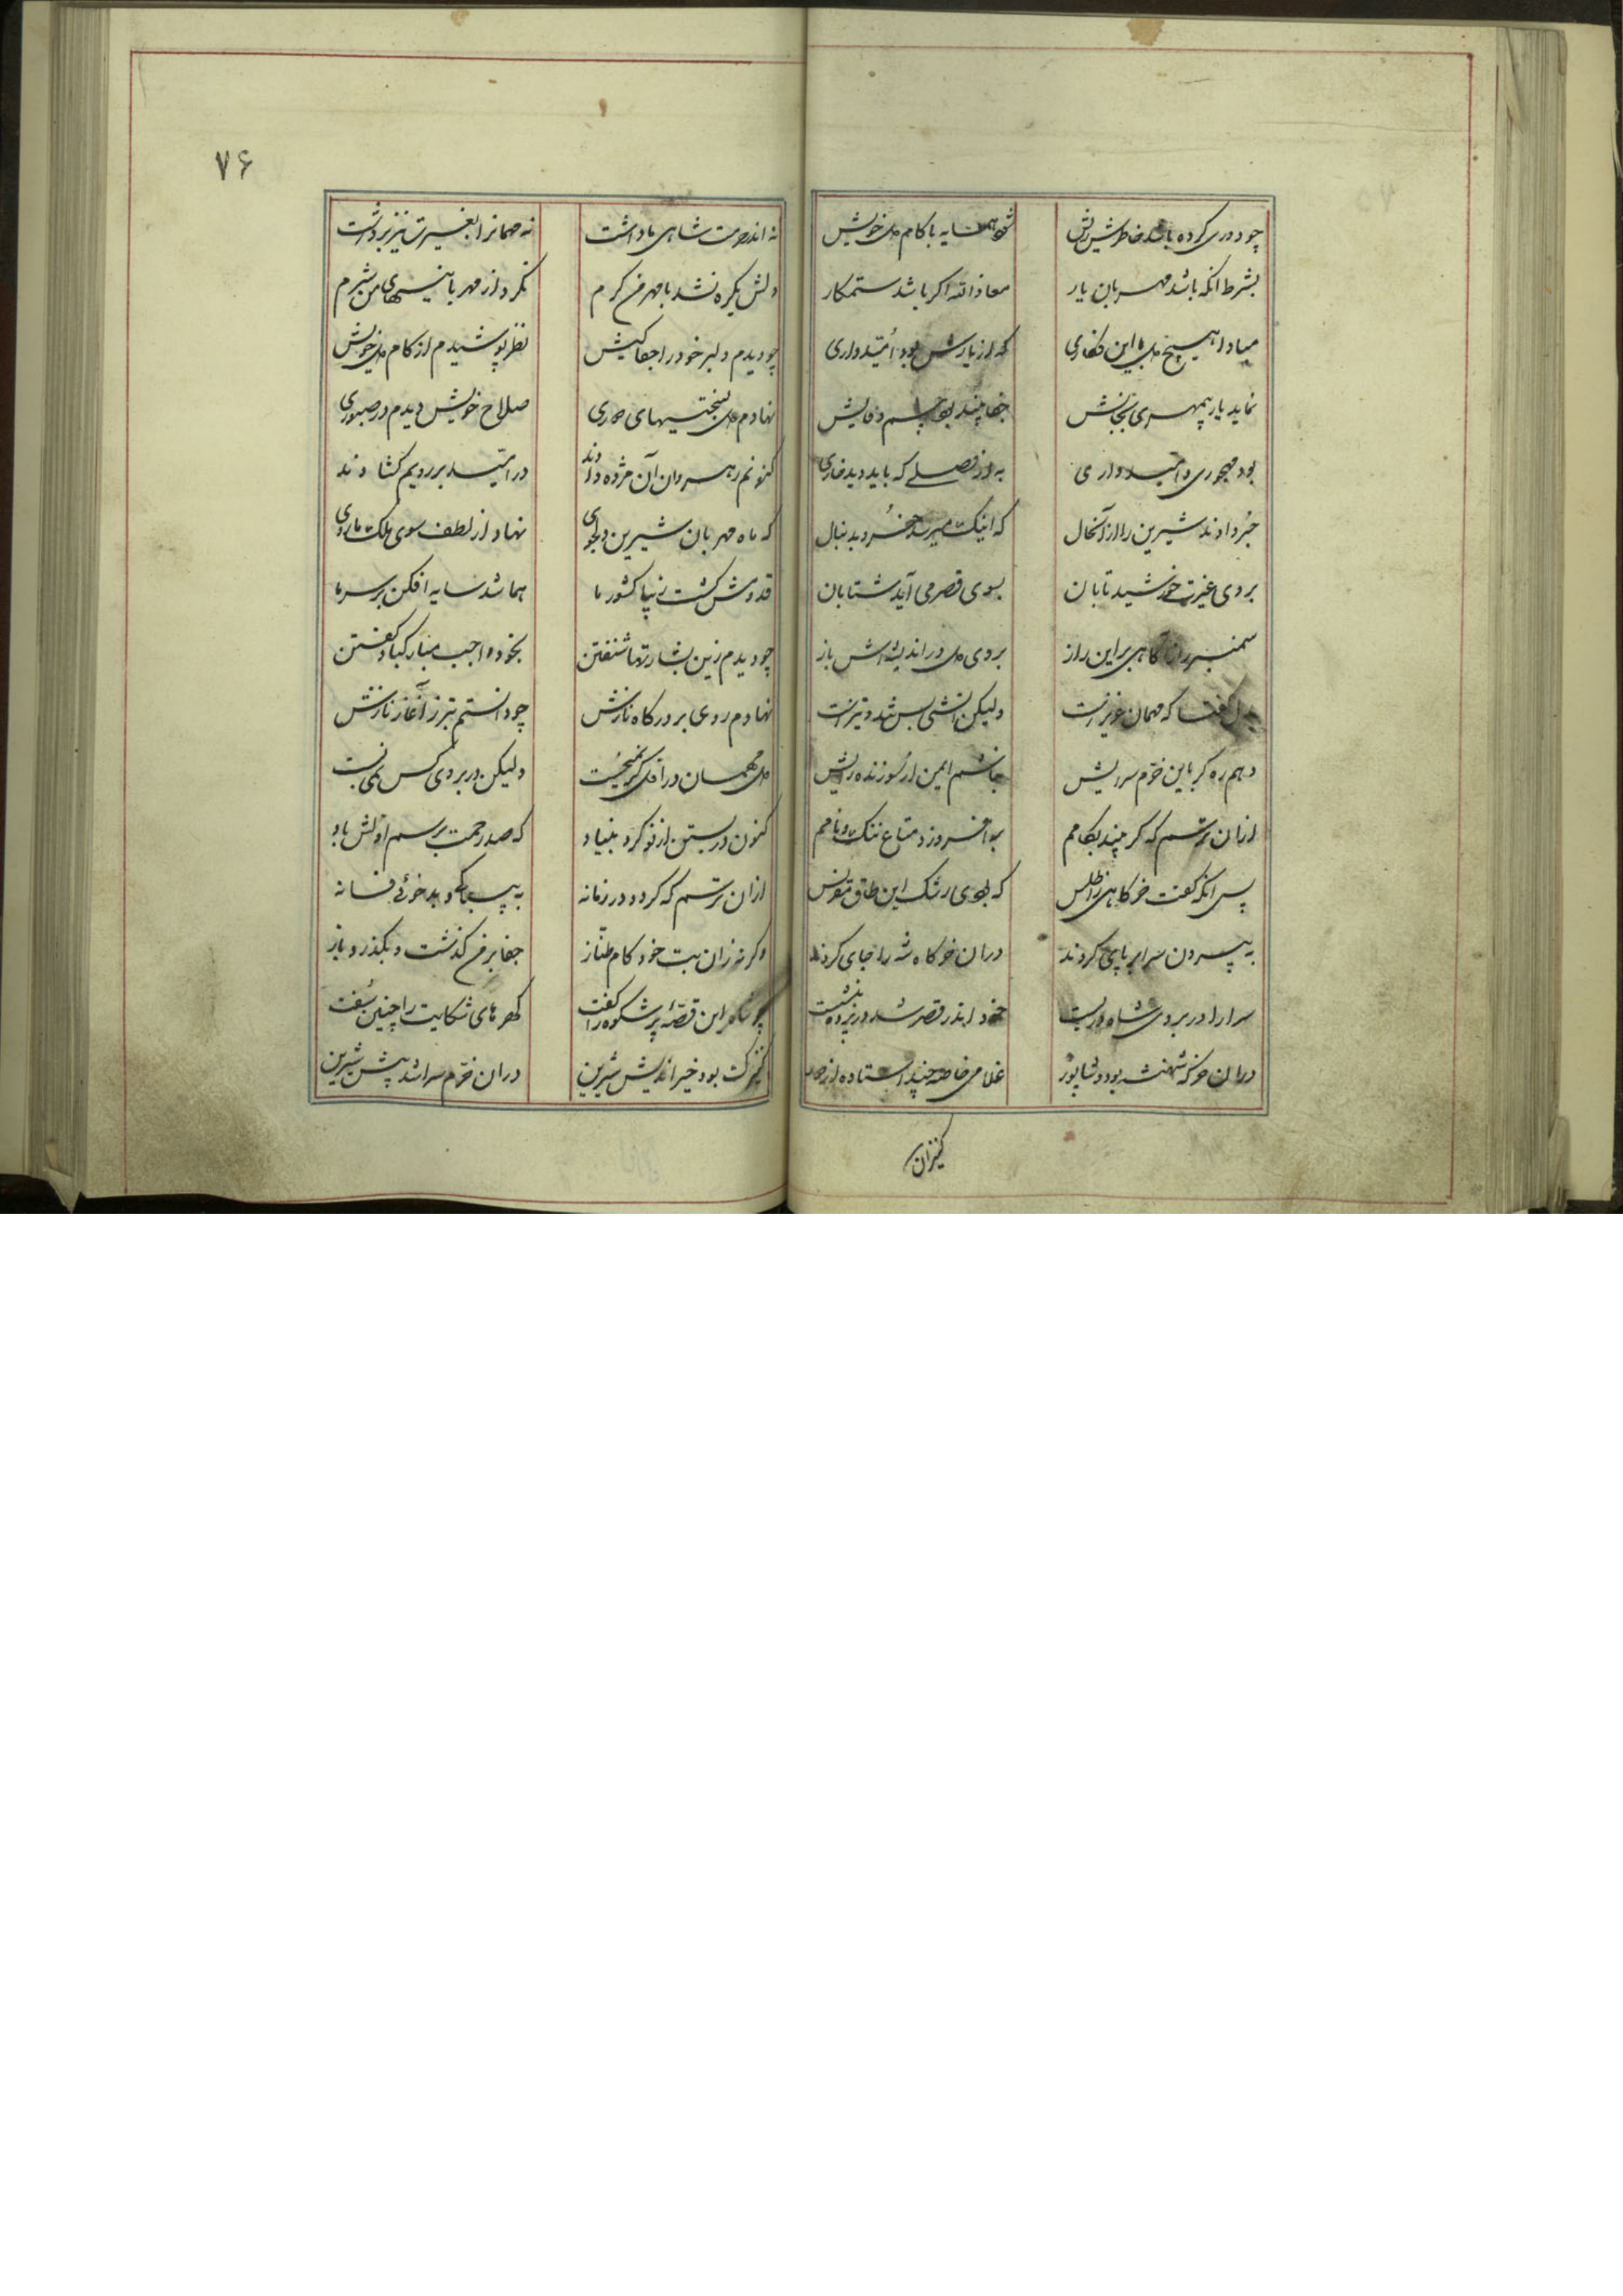 چو دوری کرده باشد خاطرش ریش شود همسایه با کام دل خویش
بشرط آنکه باشد مهربان یار معاذالله اگر باشد ستمکار
مبادا هیچ دل با این فکاری که از یارش بود امیدواری
نماید یار بیمهری بجانش جفا بیند بچشم
بود مهجوری و امیدواری به از وصلی که باید دید خواری
خبر دادند شیرین را از آنحال که اینک میرسد خسرو بدنبال
بروی غیرت خورشید تابان بسوی قصر می آید شتابان
سمنبر زان آگاهی بر این راز بروی دل در اندیشه اش باز
بدل گفتا که مهمان عزیز است ولیکن آتشی بس تند و تیز است
دهم ره گر باین خرم سرایش نباشم ایمن از سوزنده رایش
ازان ترسم که گر بیند بکامم برافروزد متاع ننگ و نامم
پس آنکه گفت خرگاهی ز اطلس که بودی رشک این طاق مقرنس
به بیرون سرا برپای کردند در آن خرگاه شه را جای کردند
سرا را در بروی شاه در بست خود اندر قصر شد در پرده بنشست
در آن خرگه شهنشه بود و شاپور غلامی خاصه چند استاده از دور
کنیزان
۷۶
نه اندر حرمت شاهی ما داشت نه مهمانرا بغیرت نیز برداشت
دلش یکره نشد با مهر من گرم نکرد از مهربانیهای من شرم
چو دیدم دلبر خود را جفاکیش نظر پوشیدم از کام دل خویش
نهادم دل بسختیهای دوری صلاح خویش دیدم در صبوری
کنونم رهروان آن مژده دادند در امید بر رویم کشادند
که ماه مهربان شیرین دلجوی نهاد از لطف سوی ملک ما روی
قدومش گشت زیبا کشور ما هما شد سایه افکن بر سر ما
چو دیدم زین بشارتها شنفتن بخود واجب مبارکباد گفتن
نهادم روی بر درگاه نازش چو دانستم بتر ز آغاز نازش
دل مهمان در اول گر نمیخست ولیکن در بروی کس نمی بست
کنون در بستن از نو کرد بنیاد که صد رحمت برسم اولش باد
ازان ترسم که گردد در زمانه به بیباکی و بدخوئی فسانه
وگرنه زان بت خودکام طناز جفا بر من گذشت و بگذرد باز
چو شاه این قصه پر شکوه را گفت گهرهای شکایت را چنین سفت
کنیزک بود خیراندیش شیرین در آن خرم سرا شد پیش شیرین